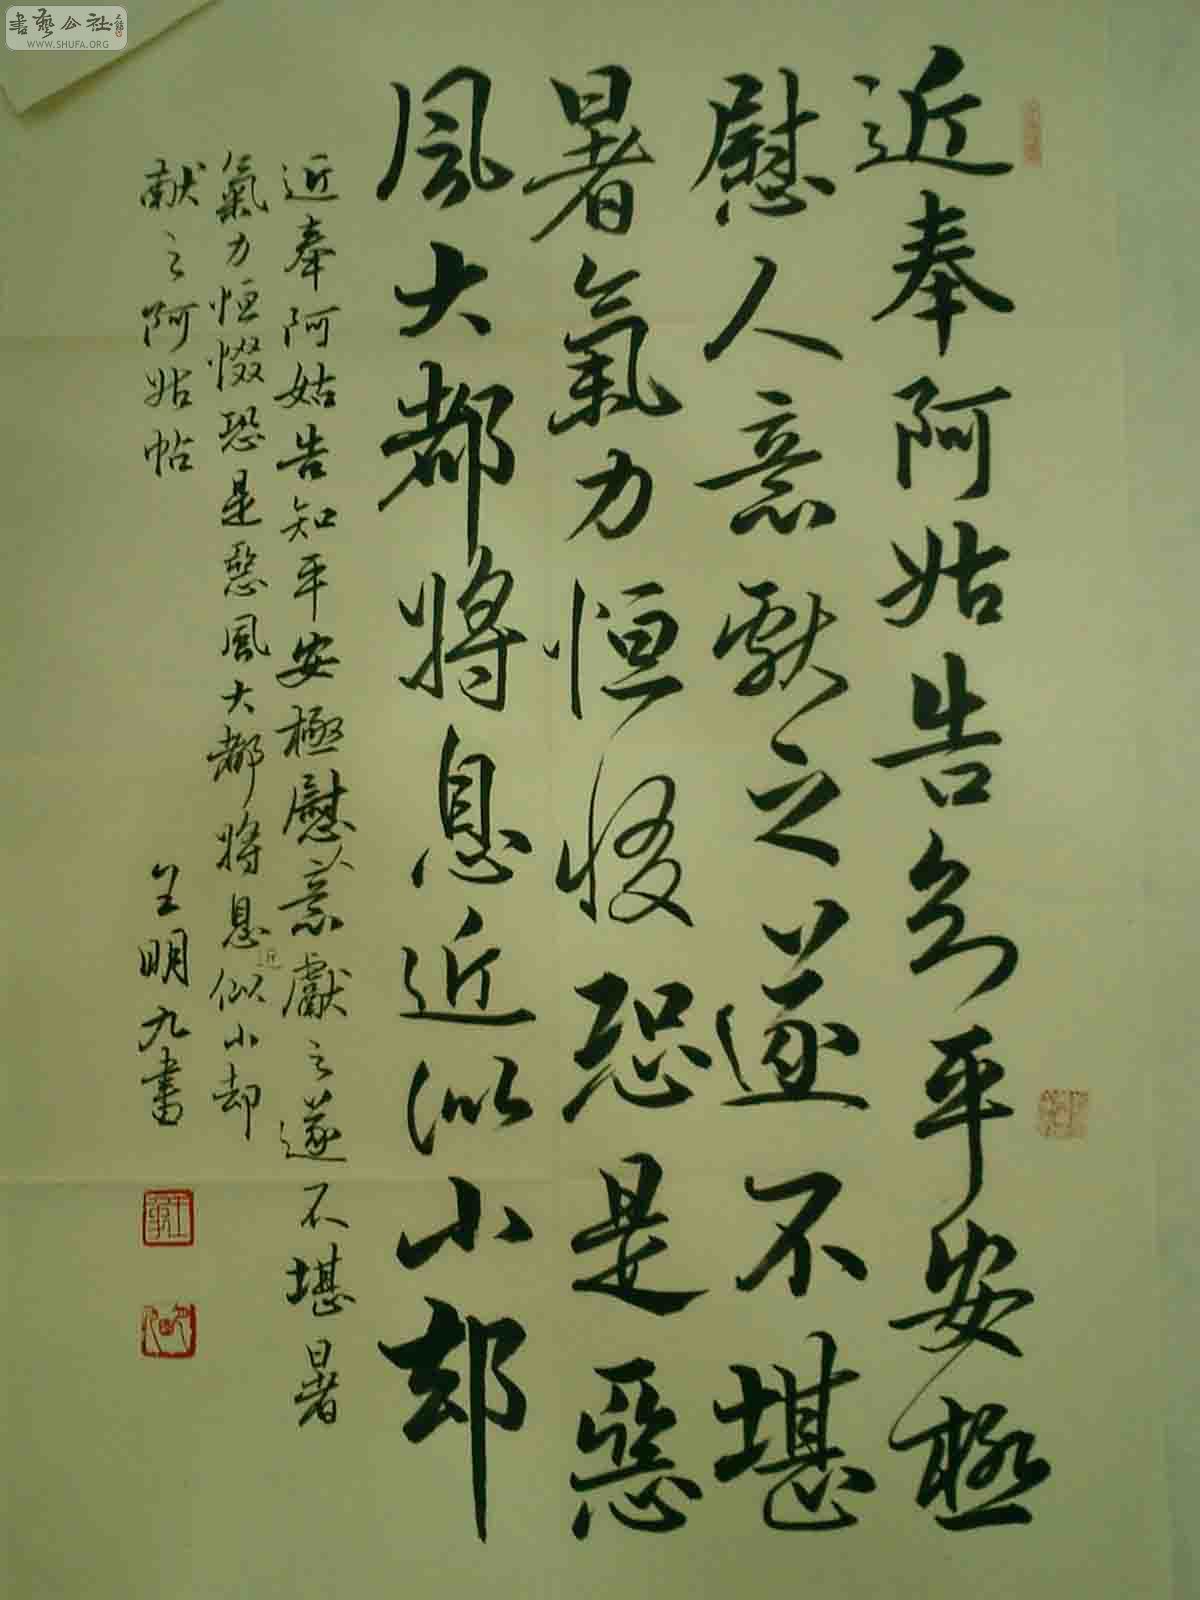 近奉阿姑告知平安極
慰人意獻之遂不堪
暑氣力恒惙恐是惡
風大都將息近似小却
近奉阿姑告知平安極慰意獻之遂不堪暑
氣力恒惙恐是惡風大都將息似小却
近
献之阿姑帖
王明九書
書藝公社
WWW.SHUFA.ORG